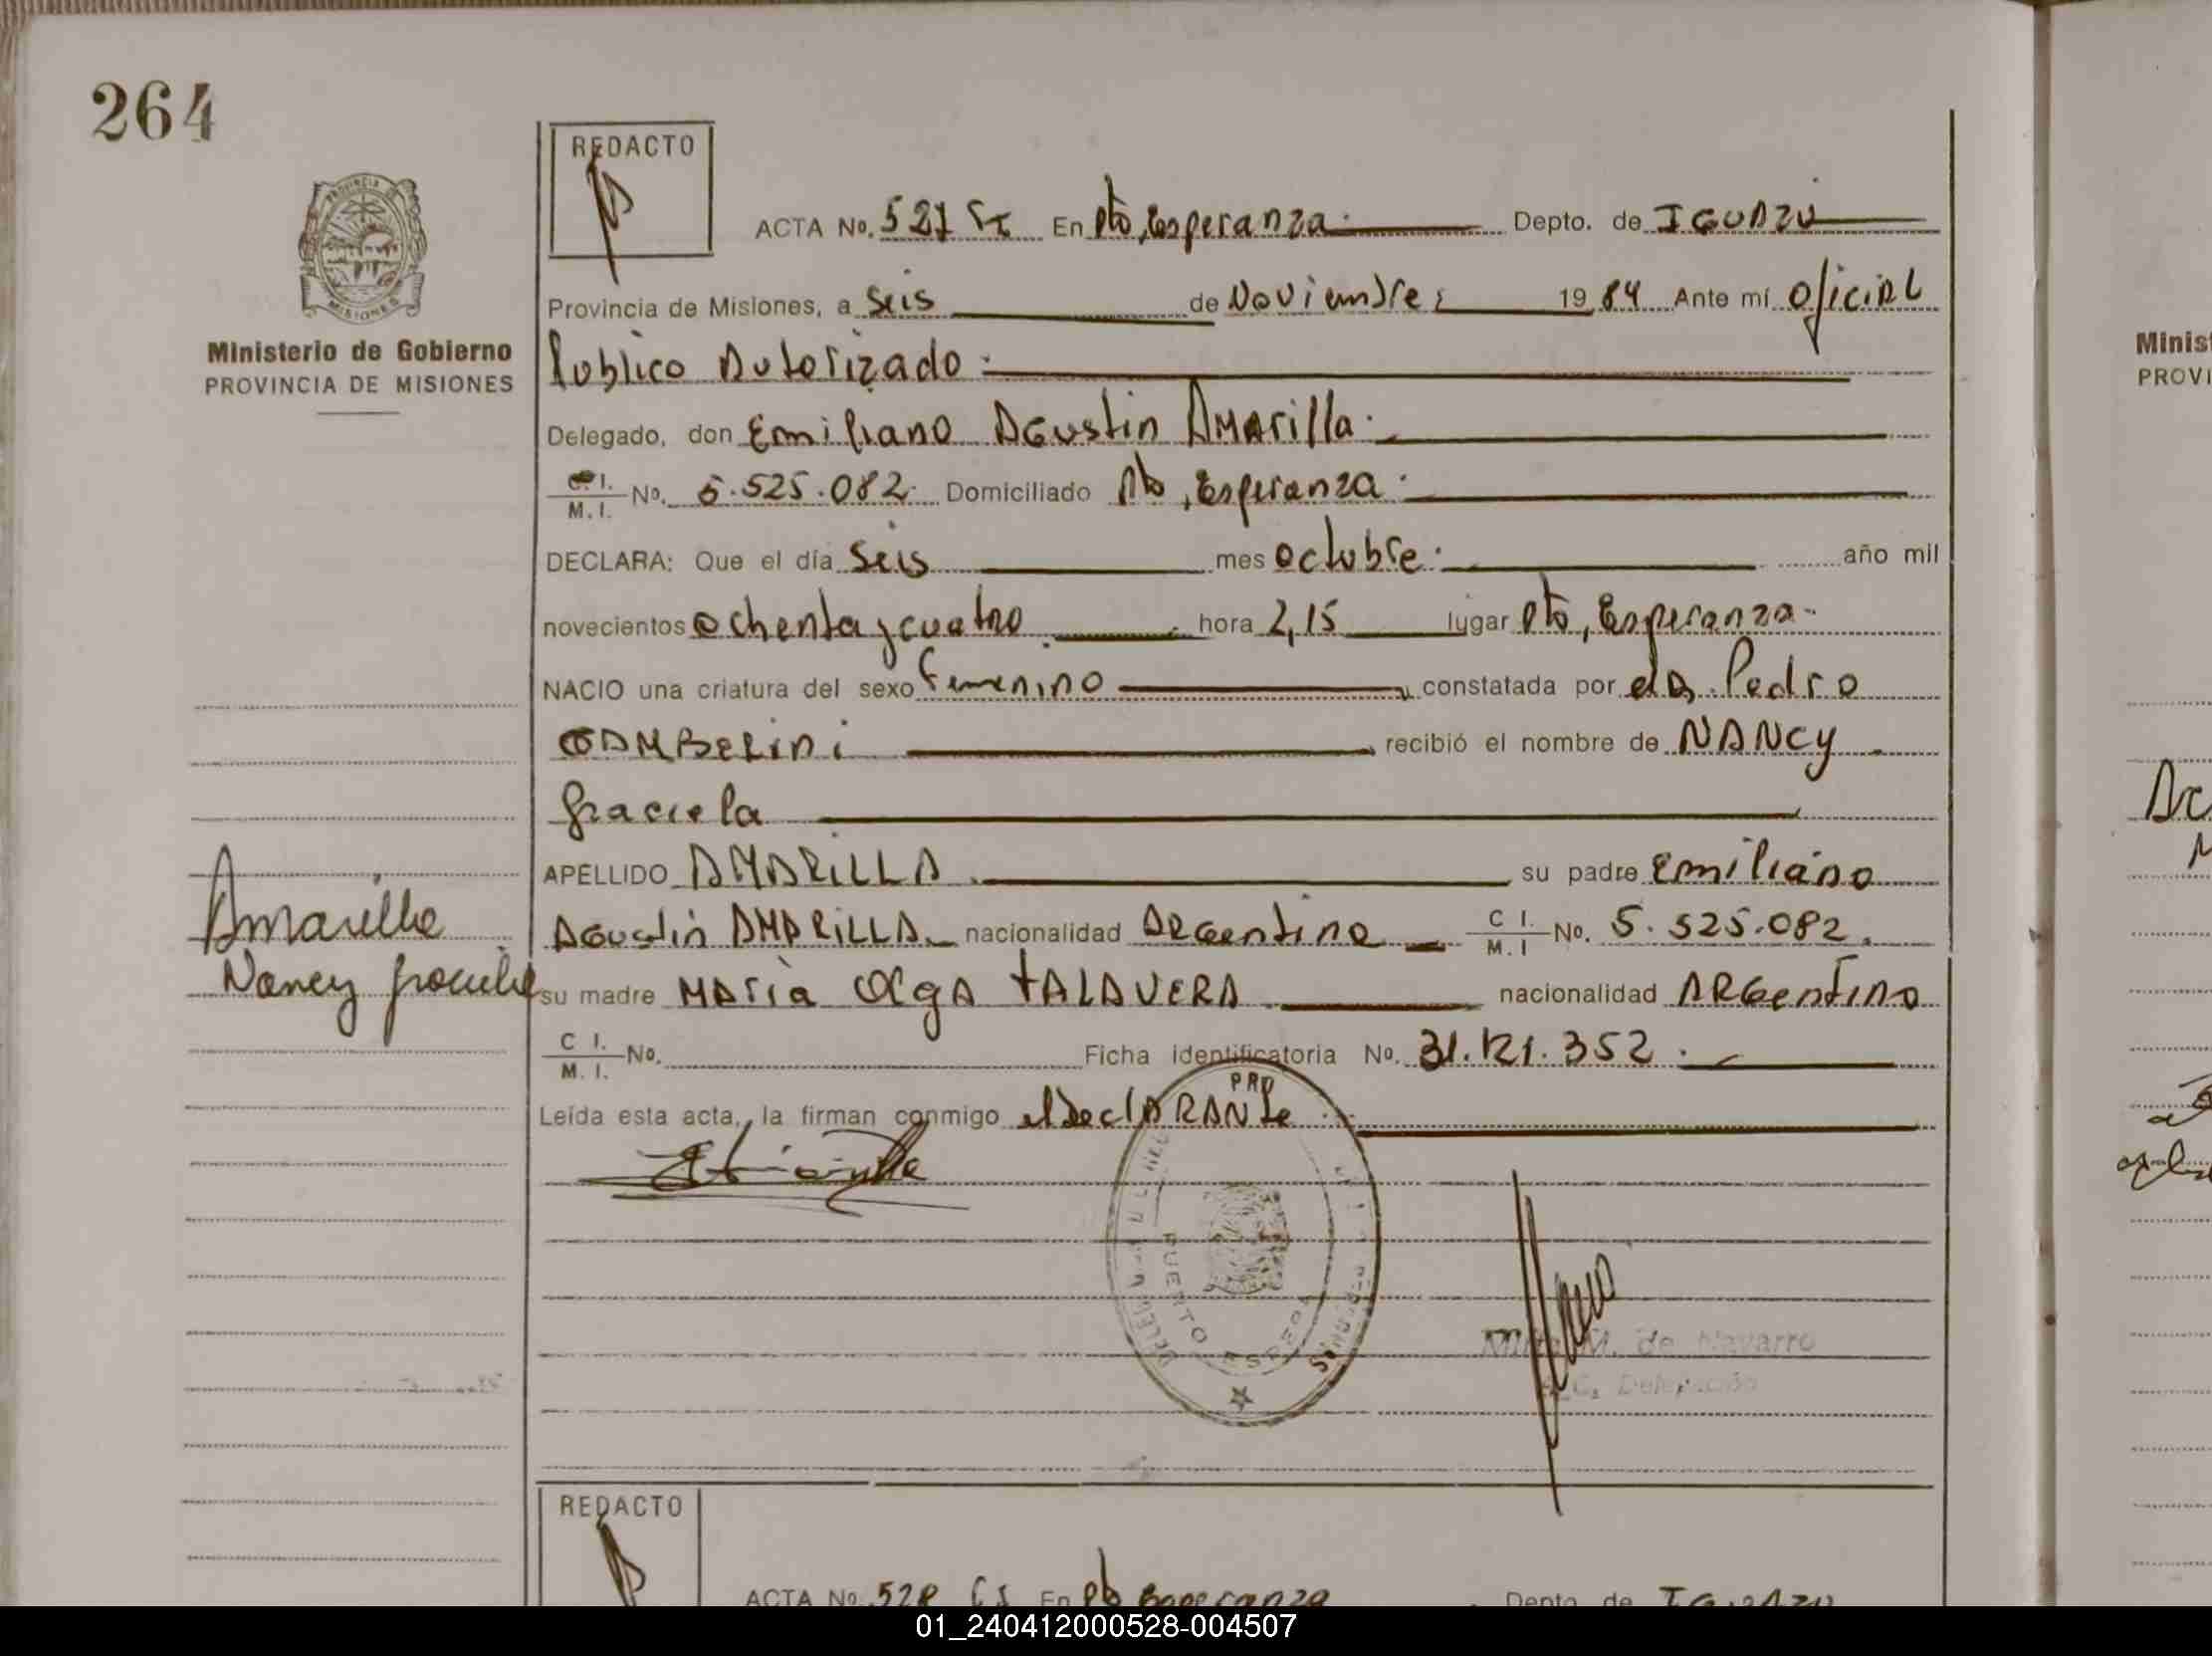 264
REDACTO
ACTA No. 527 En Pto, Esperanza. Depto. de IGUAZU
Provincia de Misiones, a Seis de Noviembre 19 84 Ante mí Oficial
Publico Autorizado
Delegado, don Emiliano Agustin Amarilla.
C. I. M. I. No. 5.525.082 Domiciliado Pto, Esperanza.
DECLARA: Que el día Seis mes octubre. año mil
novecientos ochenta y cuatro hora 2,15 lugar Pto, Esperanza.
NACIO una criatura del sexo Femenino constatada por el Dr. Pedro
GAMBERINI recibió el nombre de NANCY
Graciela
APELLIDO AMARILLA su padre Emiliano
Agustin AMARILLA nacionalidad Argentina C I. M. I No. 5.525.082.
su madre MARIA Olga TALAVERA nacionalidad ARGentina
C I. M. I. No. Ficha identificatoria No. 31.121.352.
Leída esta acta, la firman conmigo el DeclARANte
PUERTO
M. de Navarro
Delegación
Ministerio de Gobierno
PROVINCIA DE MISIONES
PROVINCIA DE
MISIONES
Amarilla
Nancy Graciela
REDACTO
ACTA No. 528 En Pto Esperanza Depto. de IGUAZU
Minist
PROVI
01_240412000528-004507